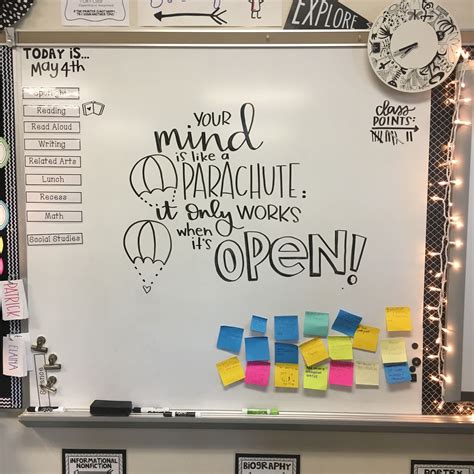 EXPLORE
TODAY IS...
MAY 4th
Reading
Read Aloud
Writing
Related Arts
Lunch
Recess
Math
Social Studies
YOUR
mind
is like a
PARACHUTE:
it only WORKS
when it's OPEN!
class
POINTS:
PATRICK
ELAINA
INFORMATIONAL
NONFICTION
BIOGRAPHY
POETRY